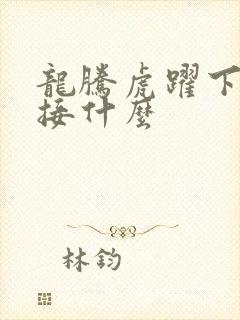 龍騰虎躍下
接什麼
林鈞